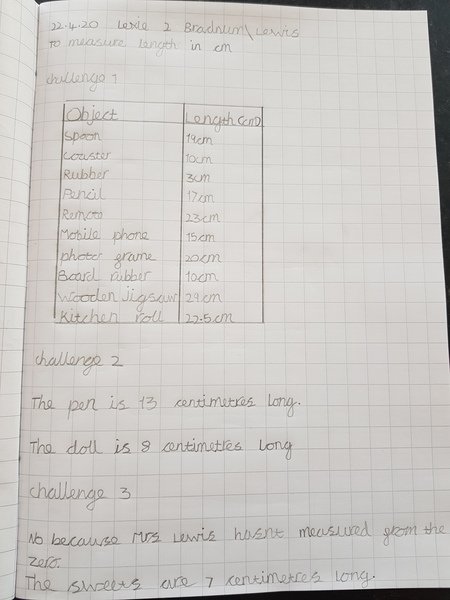 22.4.20 Lexie 2 Bradnum\Lewis
To measure length in cm
challenge 1
Object Length (cm)
Spoon 19cm
coaster 10cm
Rubber 3cm
Pencil 17cm
Remote 23cm
Mobile phone 15cm
photo grame 20cm
Board rubber 10cm
wooden Jigsaw 29cm
Kitchen roll 22.5cm
challenge 2
The pen is 13 centimetres long.
The doll is 8 centimetres long
challenge 3
No because Mrs Lewis hasnt measured grom the
zero.
The sweets are 7 centimetres long.